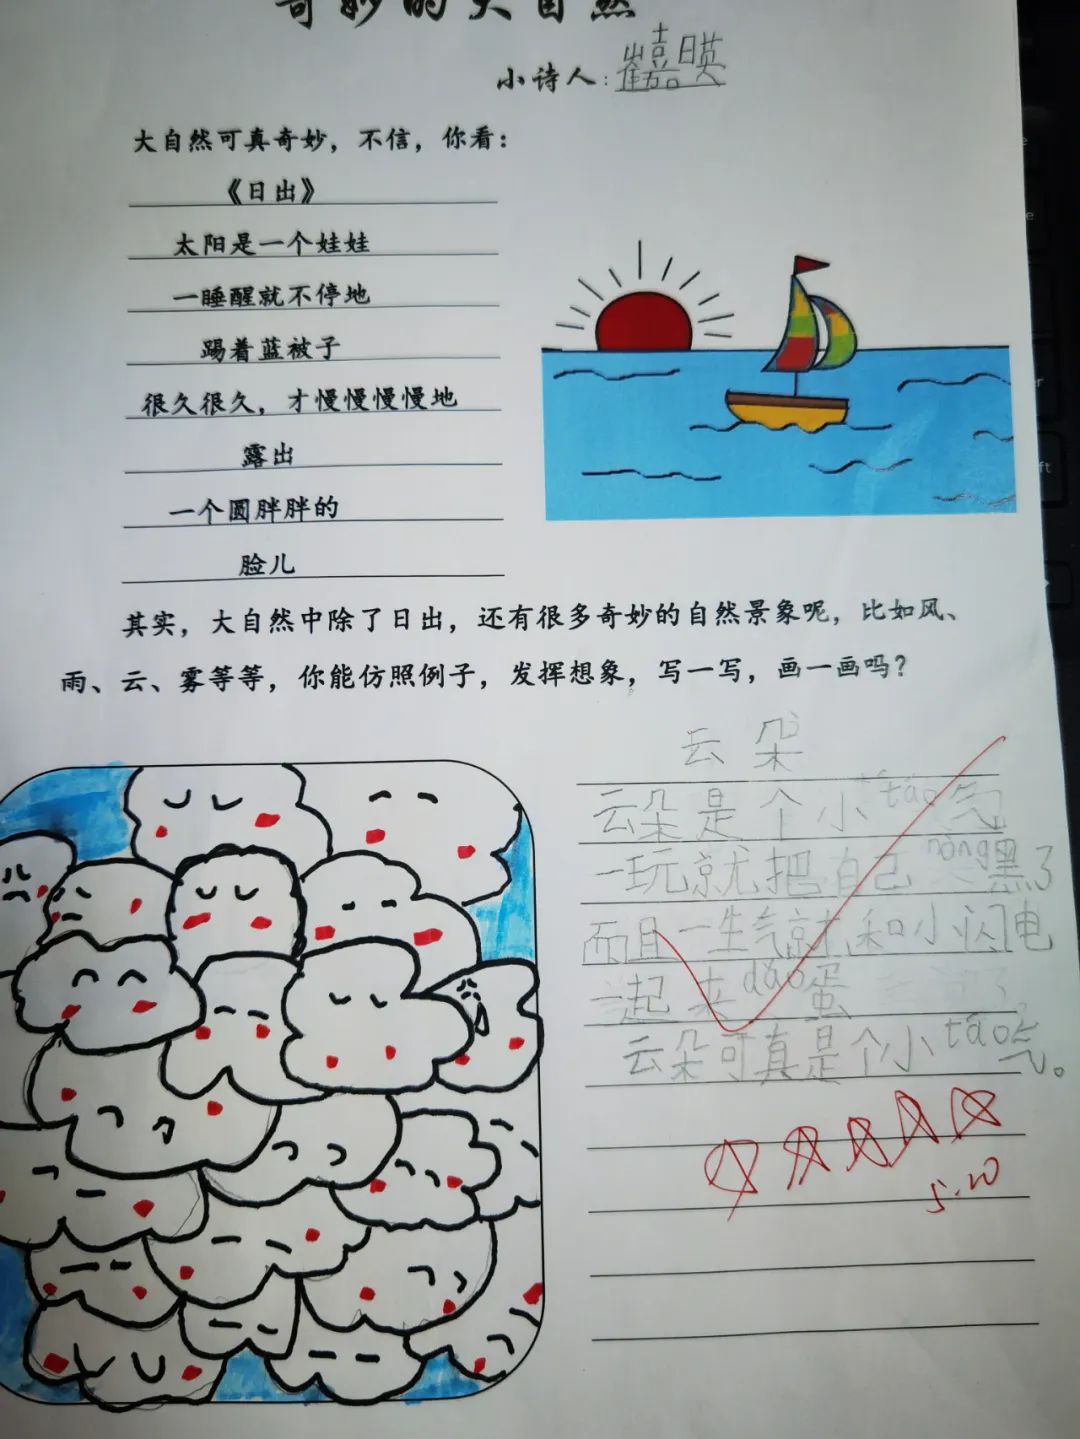 奇妙的大自然
小诗人：崔嘉暎
大自然可真奇妙，不信，你看：
《日出》
太阳是一个娃娃
一睡醒就不停地
踢着蓝被子
很久很久，才慢慢慢慢地
露出
一个圆胖胖的
脸儿
其实，大自然中除了日出，还有很多奇妙的自然景象呢，比如风、
雨、云、雾等等，你能仿照例子，发挥想象，写一写，画一画吗？
云朵
云朵是个小táo气
一玩就把自己nòng黑了
而且一生气就和小闪电
一起来dǎo蛋
云朵可真是个小táo气。
5.20